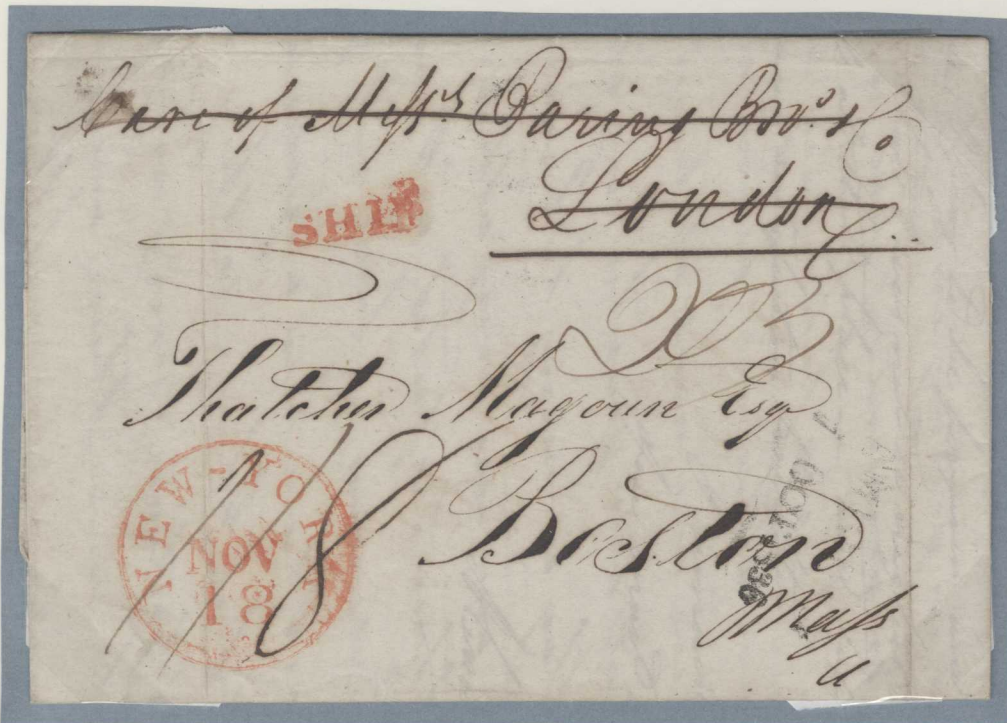 Care of Messrs Baring Bros. & Co
London
SHIP
203
Thatcher Magoun Esq
Boston
Mass
NEW-YORK
NOV
18